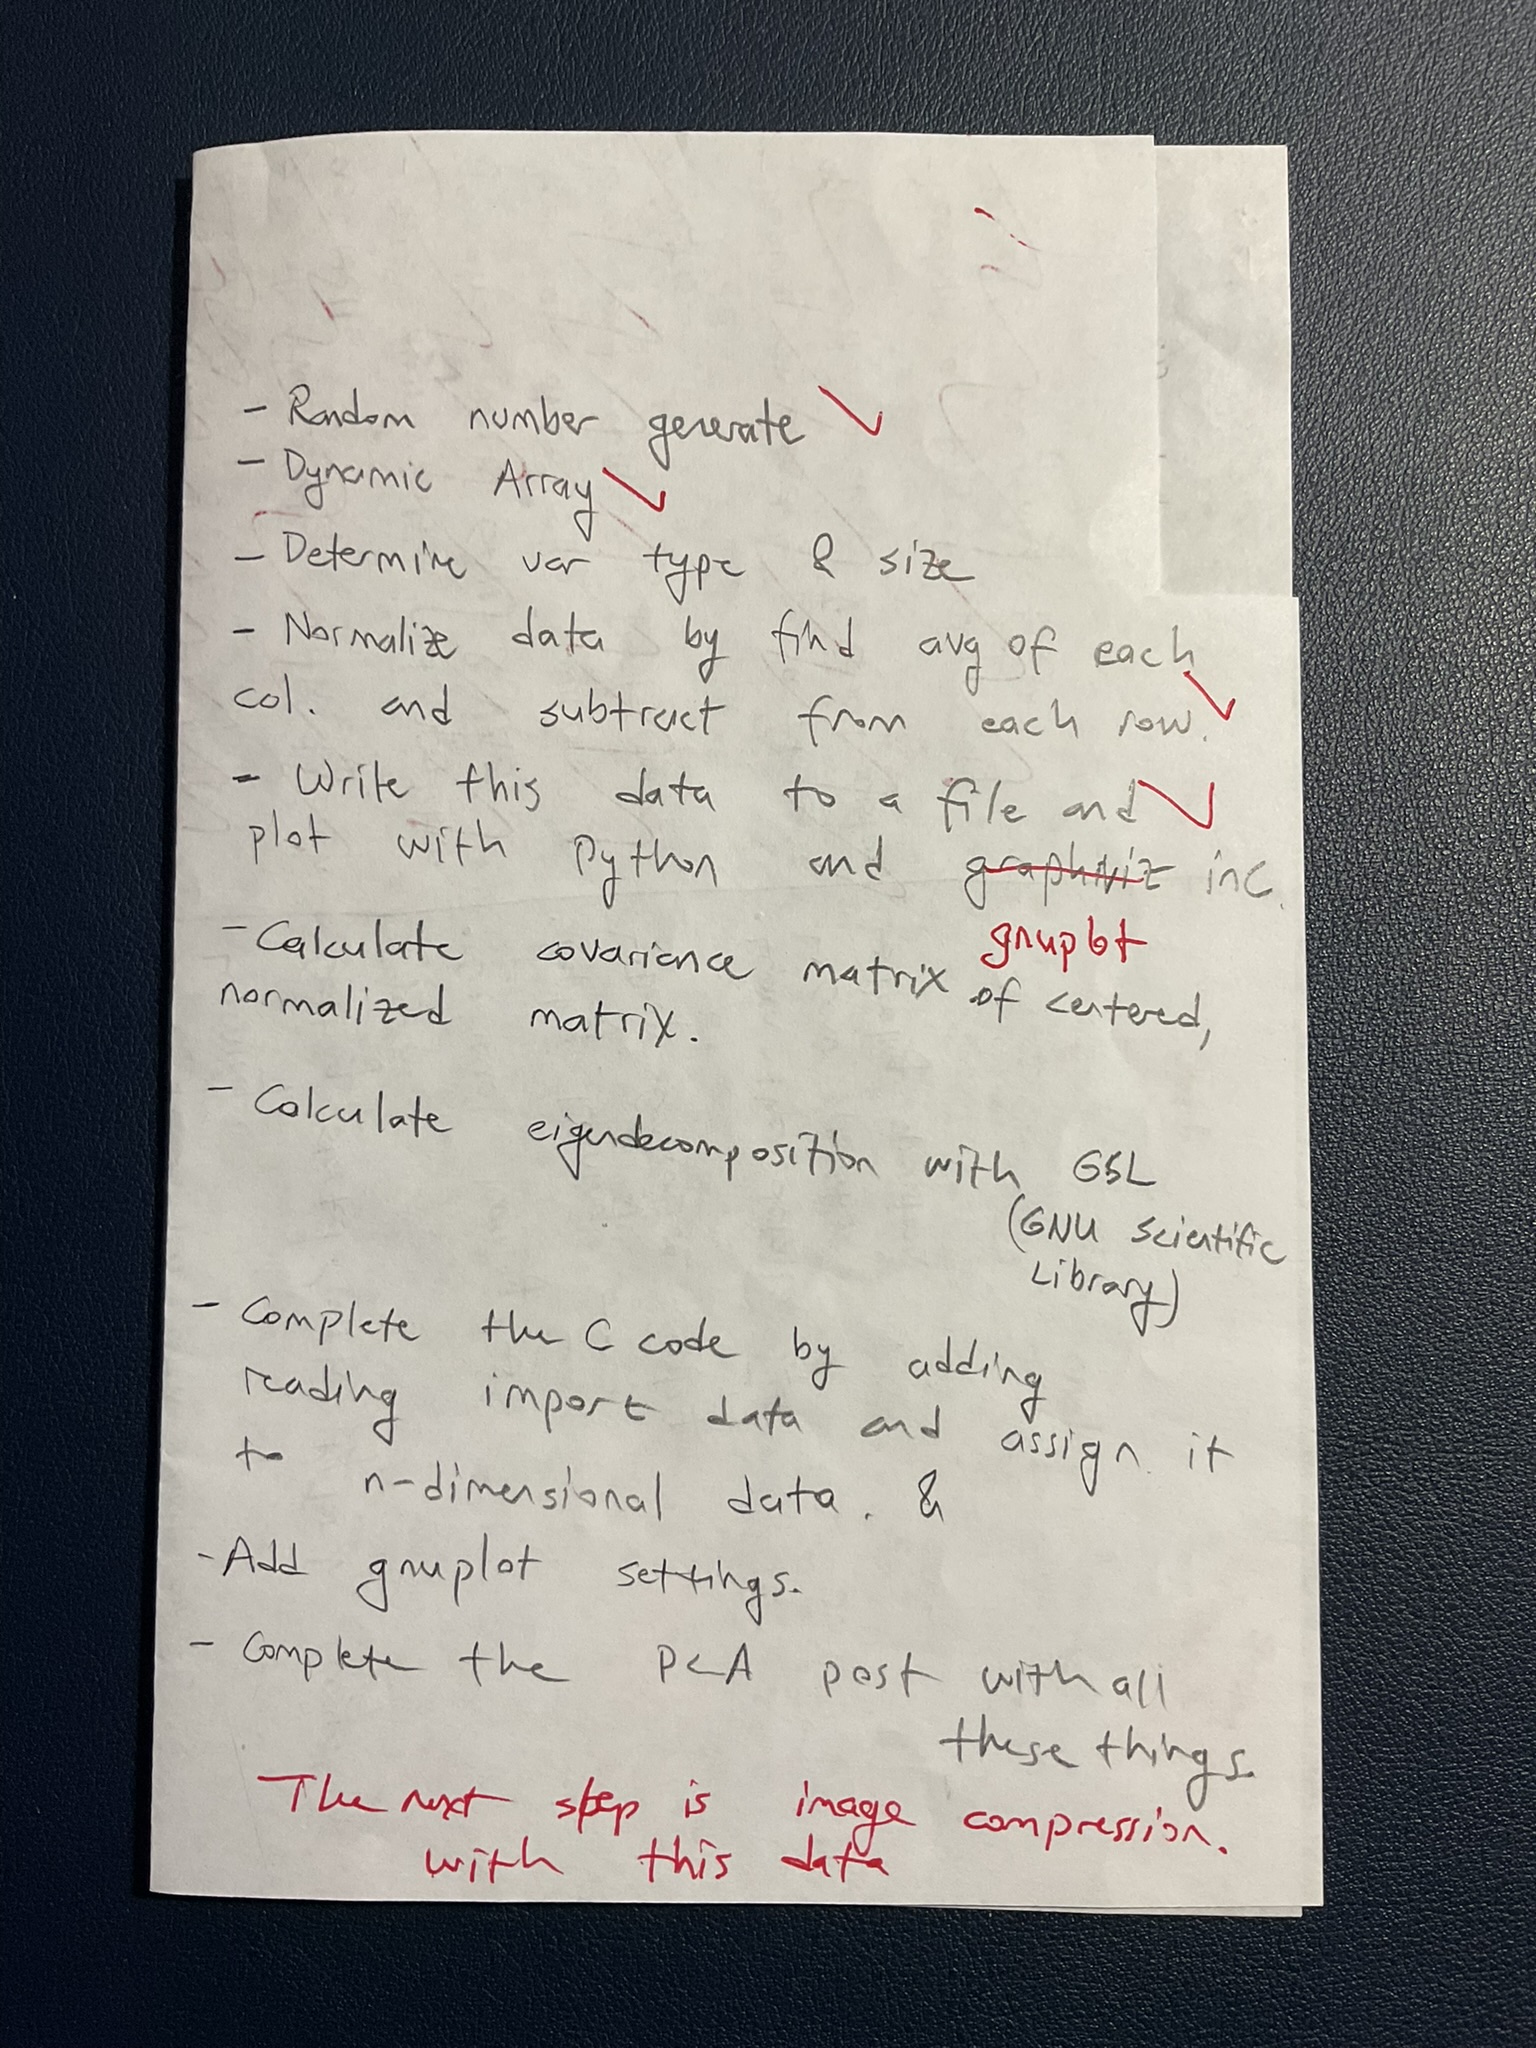 - Random number generate
- Dynamic Array
- Determine var type & size
- Normalize data by find avg of each
col. and subtract from each row.
- Write this data to a file and
plot with Python and graphviz inc.
gnuplot
- Calculate covariance matrix of centered,
normalized matrix.
- Calculate eigendecomposition with GSL
(GNU Scientific
Library)
- Complete the C code by adding
reading import data and assign it
to n-dimensional data. &
- Add gnuplot settings.
- Complete the PCA post with all
these things.
The next step is image compression.
with this data